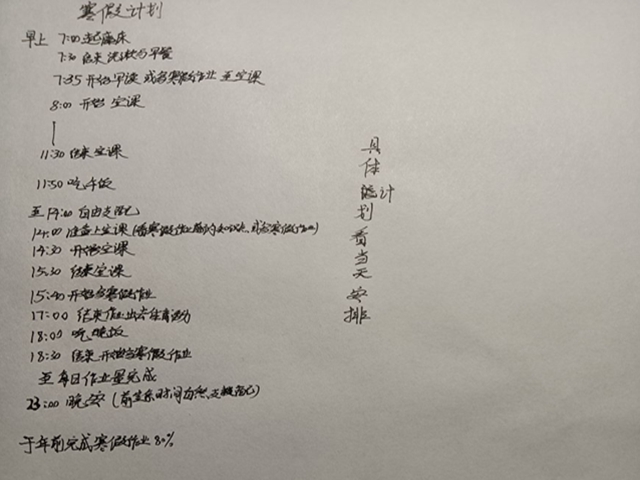 寒假计划
早上 7:00 起床
7:30 结束洗漱与早餐
7:35 开始早读 或写寒假作业 至空课
8:00 开始 空课
11:30 结束空课
11:50 吃午饭
至14:00 自由支配
14:00 准备上空课(看寒假作业 或写寒假作业)
14:30 开始空课
15:30 结束空课
15:40 开始写寒假作业
17:00 结束作业 出去体育运动
18:00 吃晚饭
18:30 结束 开始写寒假作业
至每日作业量完成
23:00 晚安 (前 时间自然支配)
于年前完成寒假作业80%
具体计划看当天安排